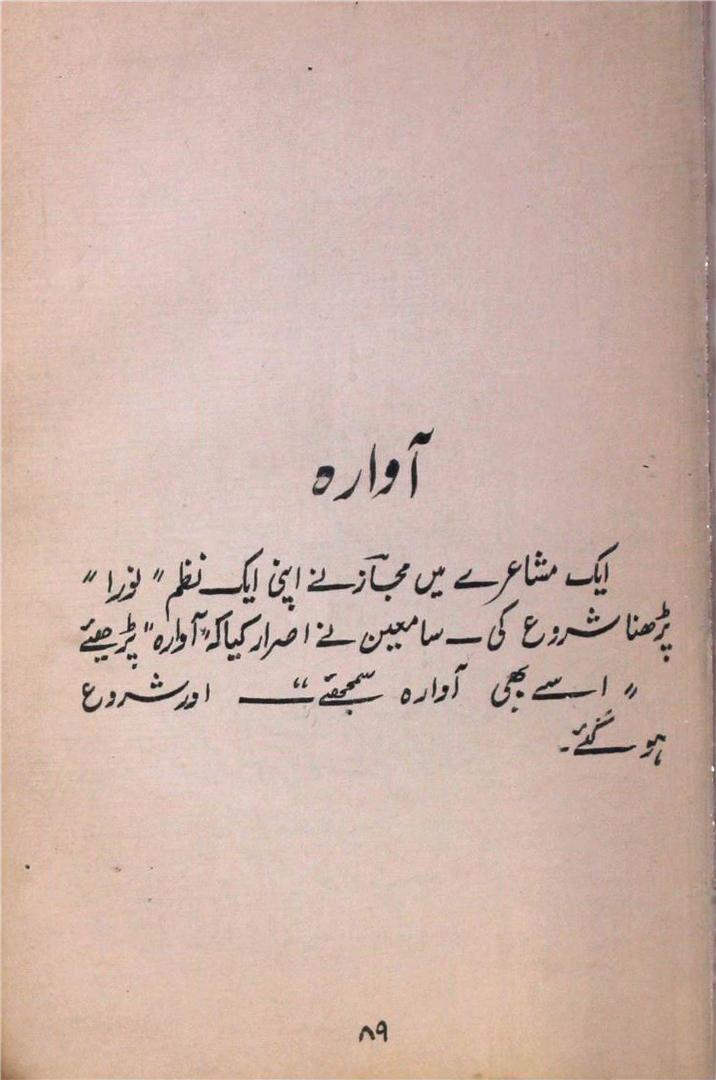 آوارہ
ایک مشاعرے میں مجازؔ نے اپنی ایک نظم "نورا"
پڑھنا شروع کی۔ سامعین نے اصرار کیا کہ "آوارہ" پڑھیئے
"اسے بھی آوارہ سمجھیئے" ۔ اور شروع
ہو گئے۔
۸۹